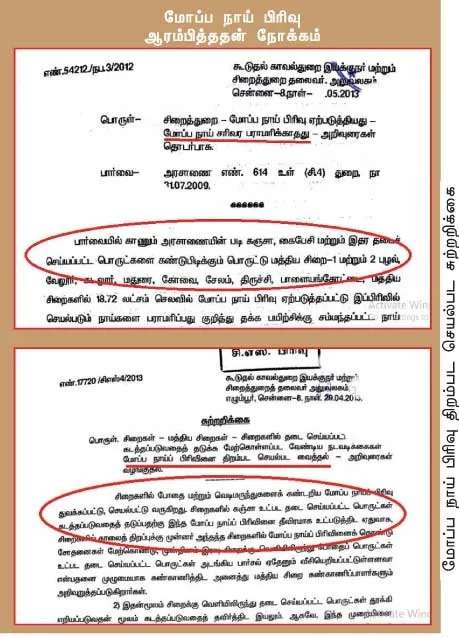 மோப்ப நாய் பிரிவு
ஆரம்பித்ததன் நோக்கம்
எண்.54212/நப3/2012
கூடுதல் காவல்துறை இயக்குநர் மற்றும்
சிறைத்துறை தலைவர் அலுவலகம்
சென்னை-8,நாள்- .05.2013
பொருள்- சிறைத்துறை – மோப்ப நாய் பிரிவு ஏற்படுத்தியது –
மோப்ப நாய் சரிவர பராமரிக்காதது – அறிவுரைகள்
தொடர்பாக.
பார்வை- அரசாணை எண். 614 உள் (சி.4) துறை, நா
31.07.2009.
******
பார்வையில் காணும் அரசாணையின் படி கஞ்சா, கைபேசி மற்றும் இதர தடைச்
செய்யப்பட்ட பொருட்களை கண்டுபிடிக்கும் பொருட்டு மத்திய சிறை-1 மற்றும் 2 புழல்,
வேலூர், கடலூர், மதுரை, கோவை, சேலம், திருச்சி, பாளையங்கோட்டை, மத்திய
சிறைகளில் 18.72 லட்சம் செலவில் மோப்ப நாய் பிரிவு ஏற்படுத்தப்பட்டு இப்பிரிவில்
செயல்படும் நாய்களை பராமரிப்பது குறித்து தக்க பயிற்சிக்கு சம்மந்தப்பட்ட நாய்
சி.எஸ். பிரிவு
எண்.17720 /சிஎஸ்4/2013
கூடுதல் காவல்துறை இயக்குநர் மற்றும்
சிறைத்துறைத் தலைவர் அலுவலகம்,
எழும்பூர், சென்னை-8. நாள். 29.04.2013.
சுற்றறிக்கை
பொருள். சிறைகள் - மத்திய சிறைகள் – சிறைகளில் தடை செய்யப்பட்ட
கடத்தப்படுவதைத் தடுக்க மேற்கொள்ளப்பட வேண்டிய நடவடிக்கைகள்
மோப்ப நாய்ப் பிரிவினை திறம்பட செயல்பட வைத்தல் – அறிவுரைகள்
வழங்குதல்.
சிறைகளில் போதை மற்றும் வெடிமருந்துகளைக் கண்டறிய மோப்ப நாய்ப் பிரிவு
துவக்கப்பட்டு, செயல்பட்டு வருகிறது. சிறைகளில் கஞ்சா உட்பட தடை செய்யப்பட்ட பொருட்கள்
கடத்தப்படுவதைத் தடுப்பதற்கு இந்த மோப்ப நாய்ப் பிரிவினை தீவிரமாக உட்படுத்திட ஏதுவாக,
சிறைகளில் காலைத் திறப்புக்கு முன்னர் அந்தந்த சிறைகளில் மோப்ப நாய்ப் பிரிவினைக் கொண்டு
சோதனைகள் மேற்கொண்டு, முன்தினம் இரவு சிறைக்கு வெளியிலிருந்து போதைப் பொருட்கள்
உட்பட தடை செய்யப்பட்ட பொருட்கள் அடங்கிய பார்சல் ஏதேனும் வீசியெறியப்பட்டுள்ளனவா
என்பதனை முழுமையாக கண்காணித்திட அனைத்து மத்திய சிறை கண்காணிப்பாளர்களும்
அறிவுறுத்தப்படுகிறார்கள்.
2) இதன்மூலம் சிறைக்கு வெளியிலிருந்து தடை செய்யப்பட்ட பொருட்கள் தூக்கி
எறியப்படுவதன் மூலம் கடத்தப்படுவதைத் தவிர்த்திட இயலும். ஆகவே, இந்த முறையினை
மோப்ப நாய் பிரிவு திறம்பட செயல்பட சுற்றறிக்கை